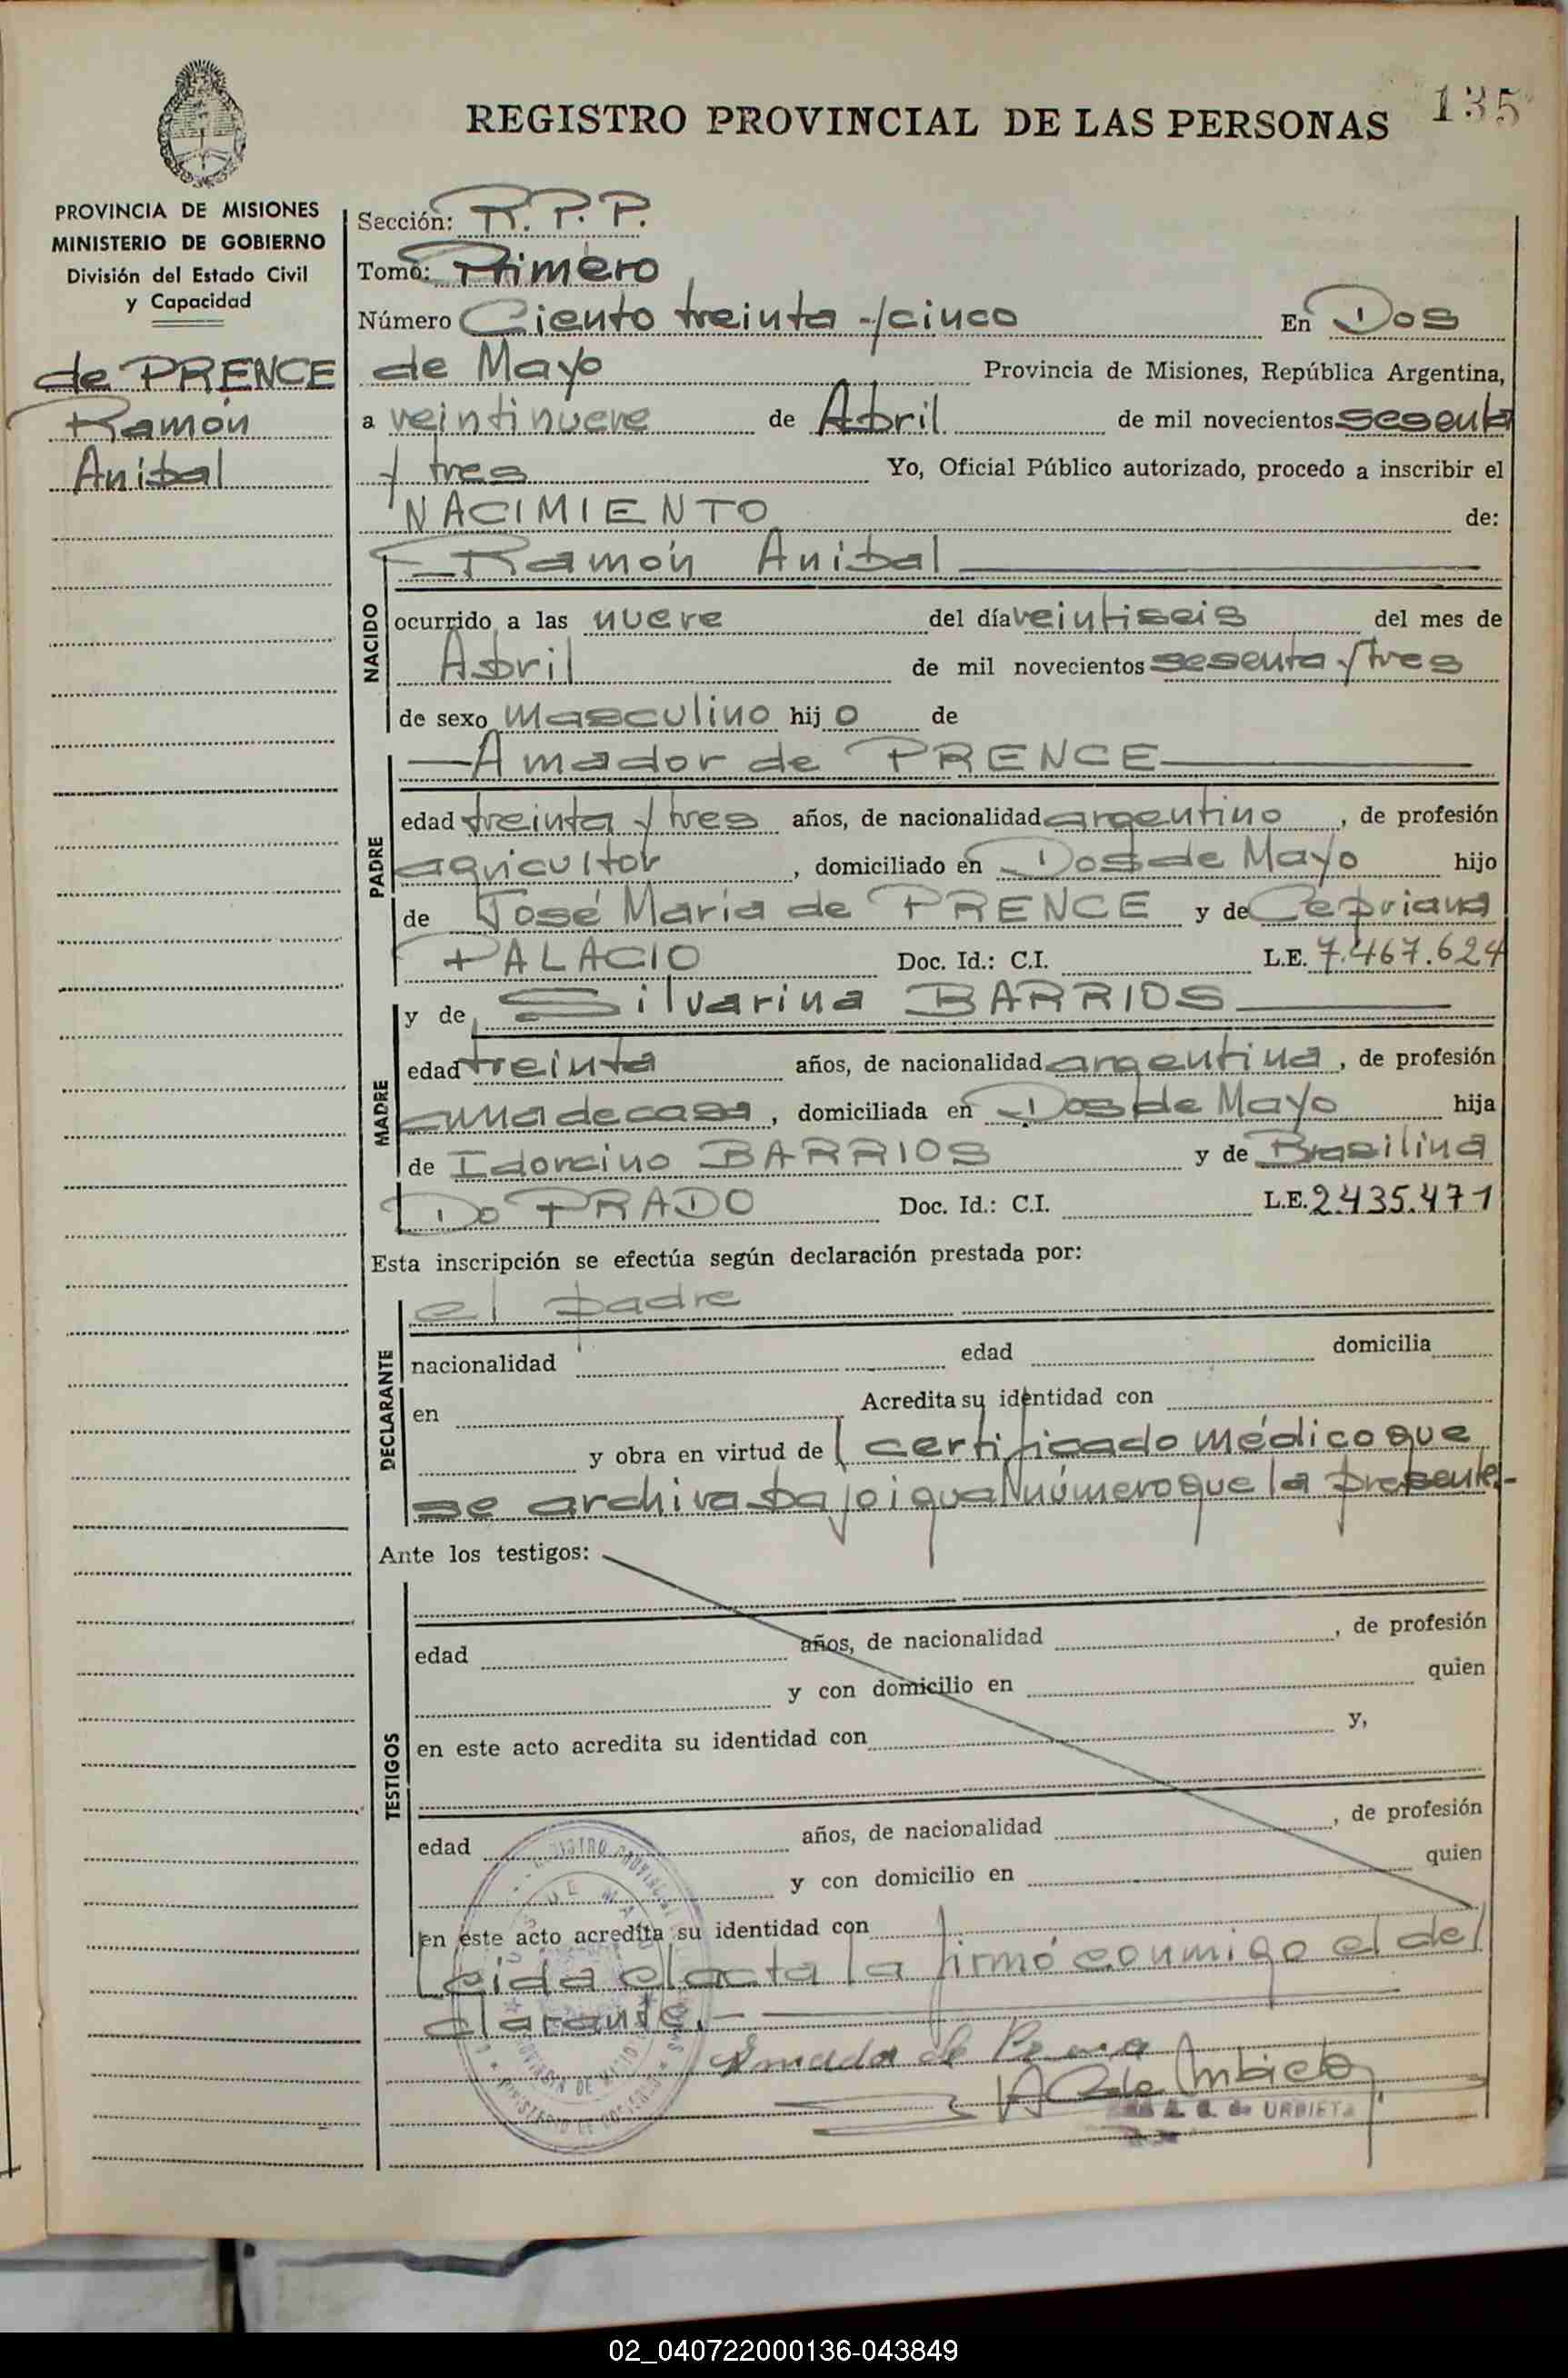 135
REGISTRO PROVINCIAL DE LAS PERSONAS
PROVINCIA DE MISIONES
MINISTERIO DE GOBIERNO
División del Estado Civil
y Capacidad
de PRENCE
Ramón
Anibal
Sección: R.P.P.
Tomo: Primero
Número Ciento treinta y cinco En Dos
de Mayo Provincia de Misiones, República Argentina,
a veintinueve de Abril de mil novecientos sesenta
y tres Yo, Oficial Público autorizado, procedo a inscribir el
NACIMIENTO de:
Ramón Anibal
NACIDO
ocurrido a las nueve del día veintiseis del mes de
Abril de mil novecientos sesenta y tres
de sexo masculino hijo de
Amador de PRENCE
PADRE
edad treinta y tres años, de nacionalidad argentino, de profesión
agricultor, domiciliado en Dos de Mayo hijo
de José María de PRENCE y de Cepriana
PALACIO Doc. Id.: C.I. L.E. 7.467.624
y de Silvarina BARRIOS
MADRE
edad treinta años, de nacionalidad argentina, de profesión
ama de casa, domiciliada en Dos de Mayo hija
de Idorcino BARRIOS y de Brasilina
Do PRADO Doc. Id.: C.I. L.E. 2.435.471
Esta inscripción se efectúa según declaración prestada por:
el padre
DECLARANTE
nacionalidad edad domicilia
en Acredita su identidad con
y obra en virtud del certificado médico que
se archiva bajo igual número que la presente.-
Ante los testigos:
TESTIGOS
edad años, de nacionalidad , de profesión
y con domicilio en quien
en este acto acredita su identidad con y,
edad años, de nacionalidad , de profesión
y con domicilio en quien
en este acto acredita su identidad con
Leida el acta la firmó conmigo el de
clarante.-
Amador de Prence
de Urbieta
de URBIETA
02_040722000136-043849